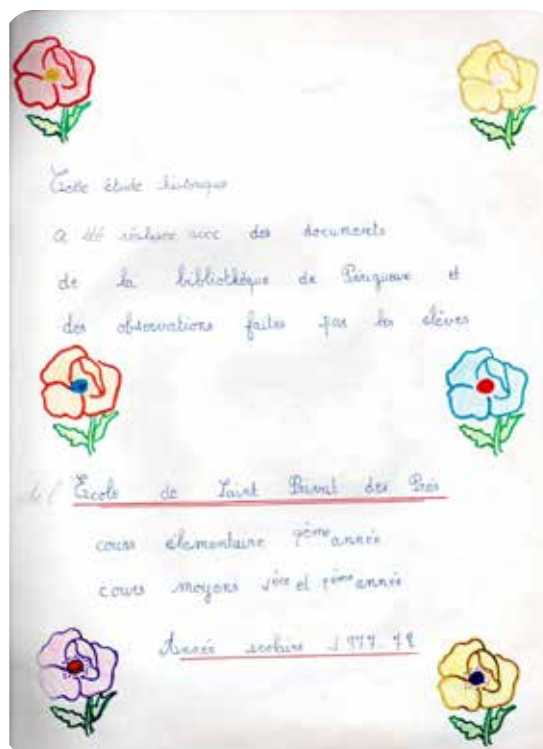 Cette étude historique
a été réalisée avec des documents
de la bibliothèque de Périgueux et
des observations faites par les élèves
de l' Ecole de Saint Privat des Prés
cours élementaire 2ème année
cours moyens 1ère et 2ème année
Année scolaire 1977-78